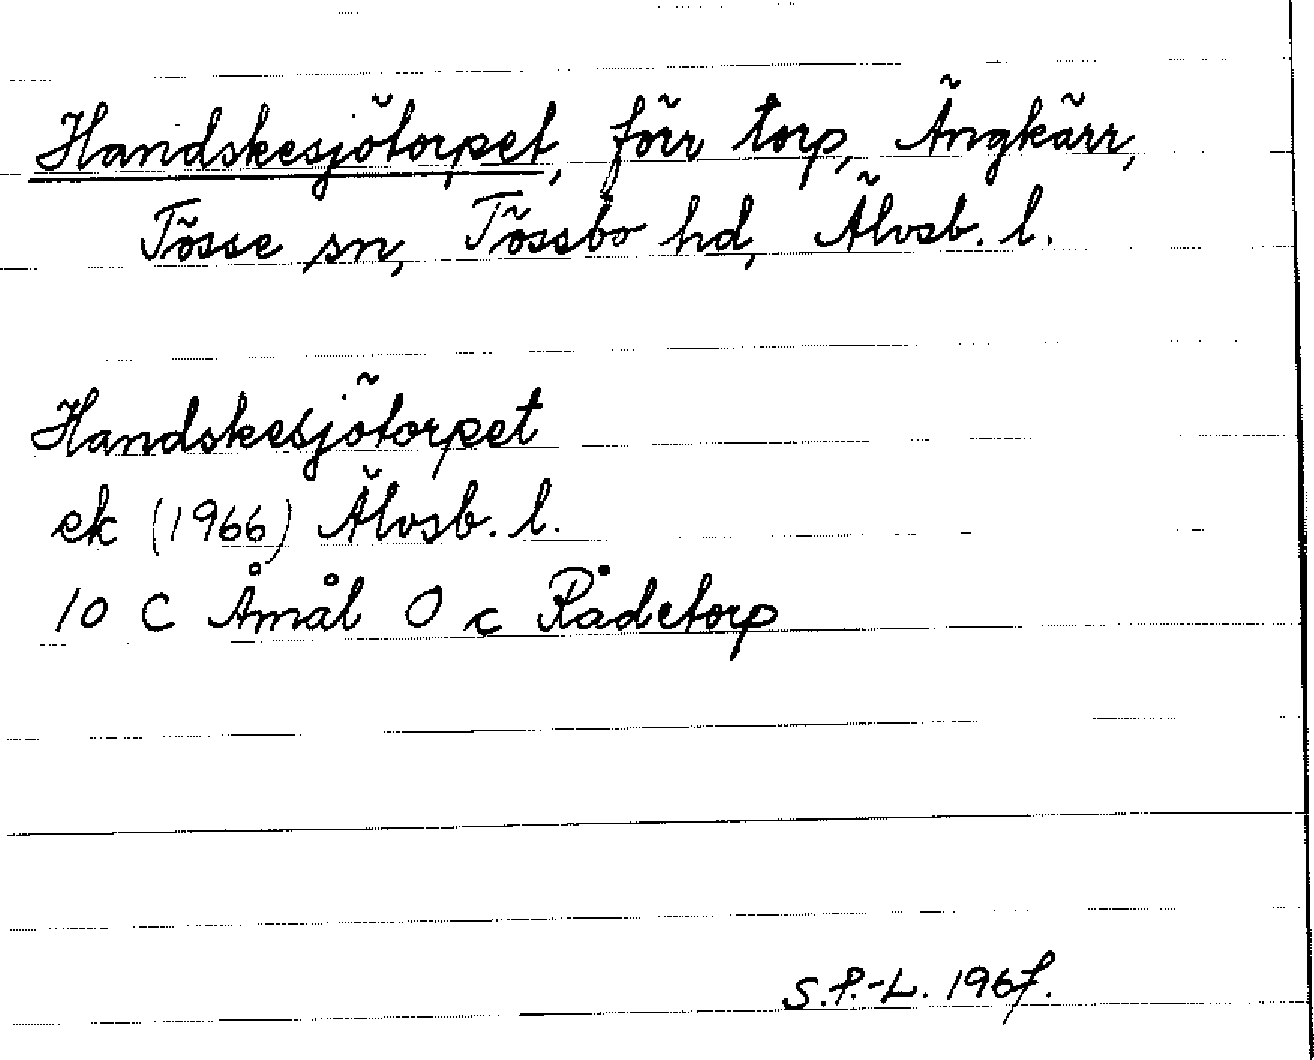 Handskesjötorpet, förr torp, Ängkärr,
Tösse sn, Tössbo hd, Älvsb. l.
Handskesjötorpet
ek (1966) Älvsb. l.
10 C Åmål O c Rådetorp
S.P.-L. 1967.